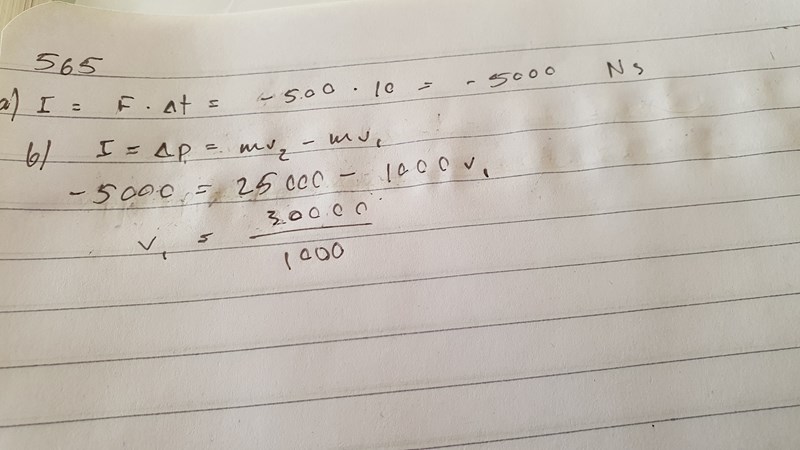 565
a) I = F · Δt = -500 · 10 = -5000 Ns
b) I = Δp = mv₂ - mv₁
-5000 = 25000 - 1000v₁
v₁ = 30000
1000